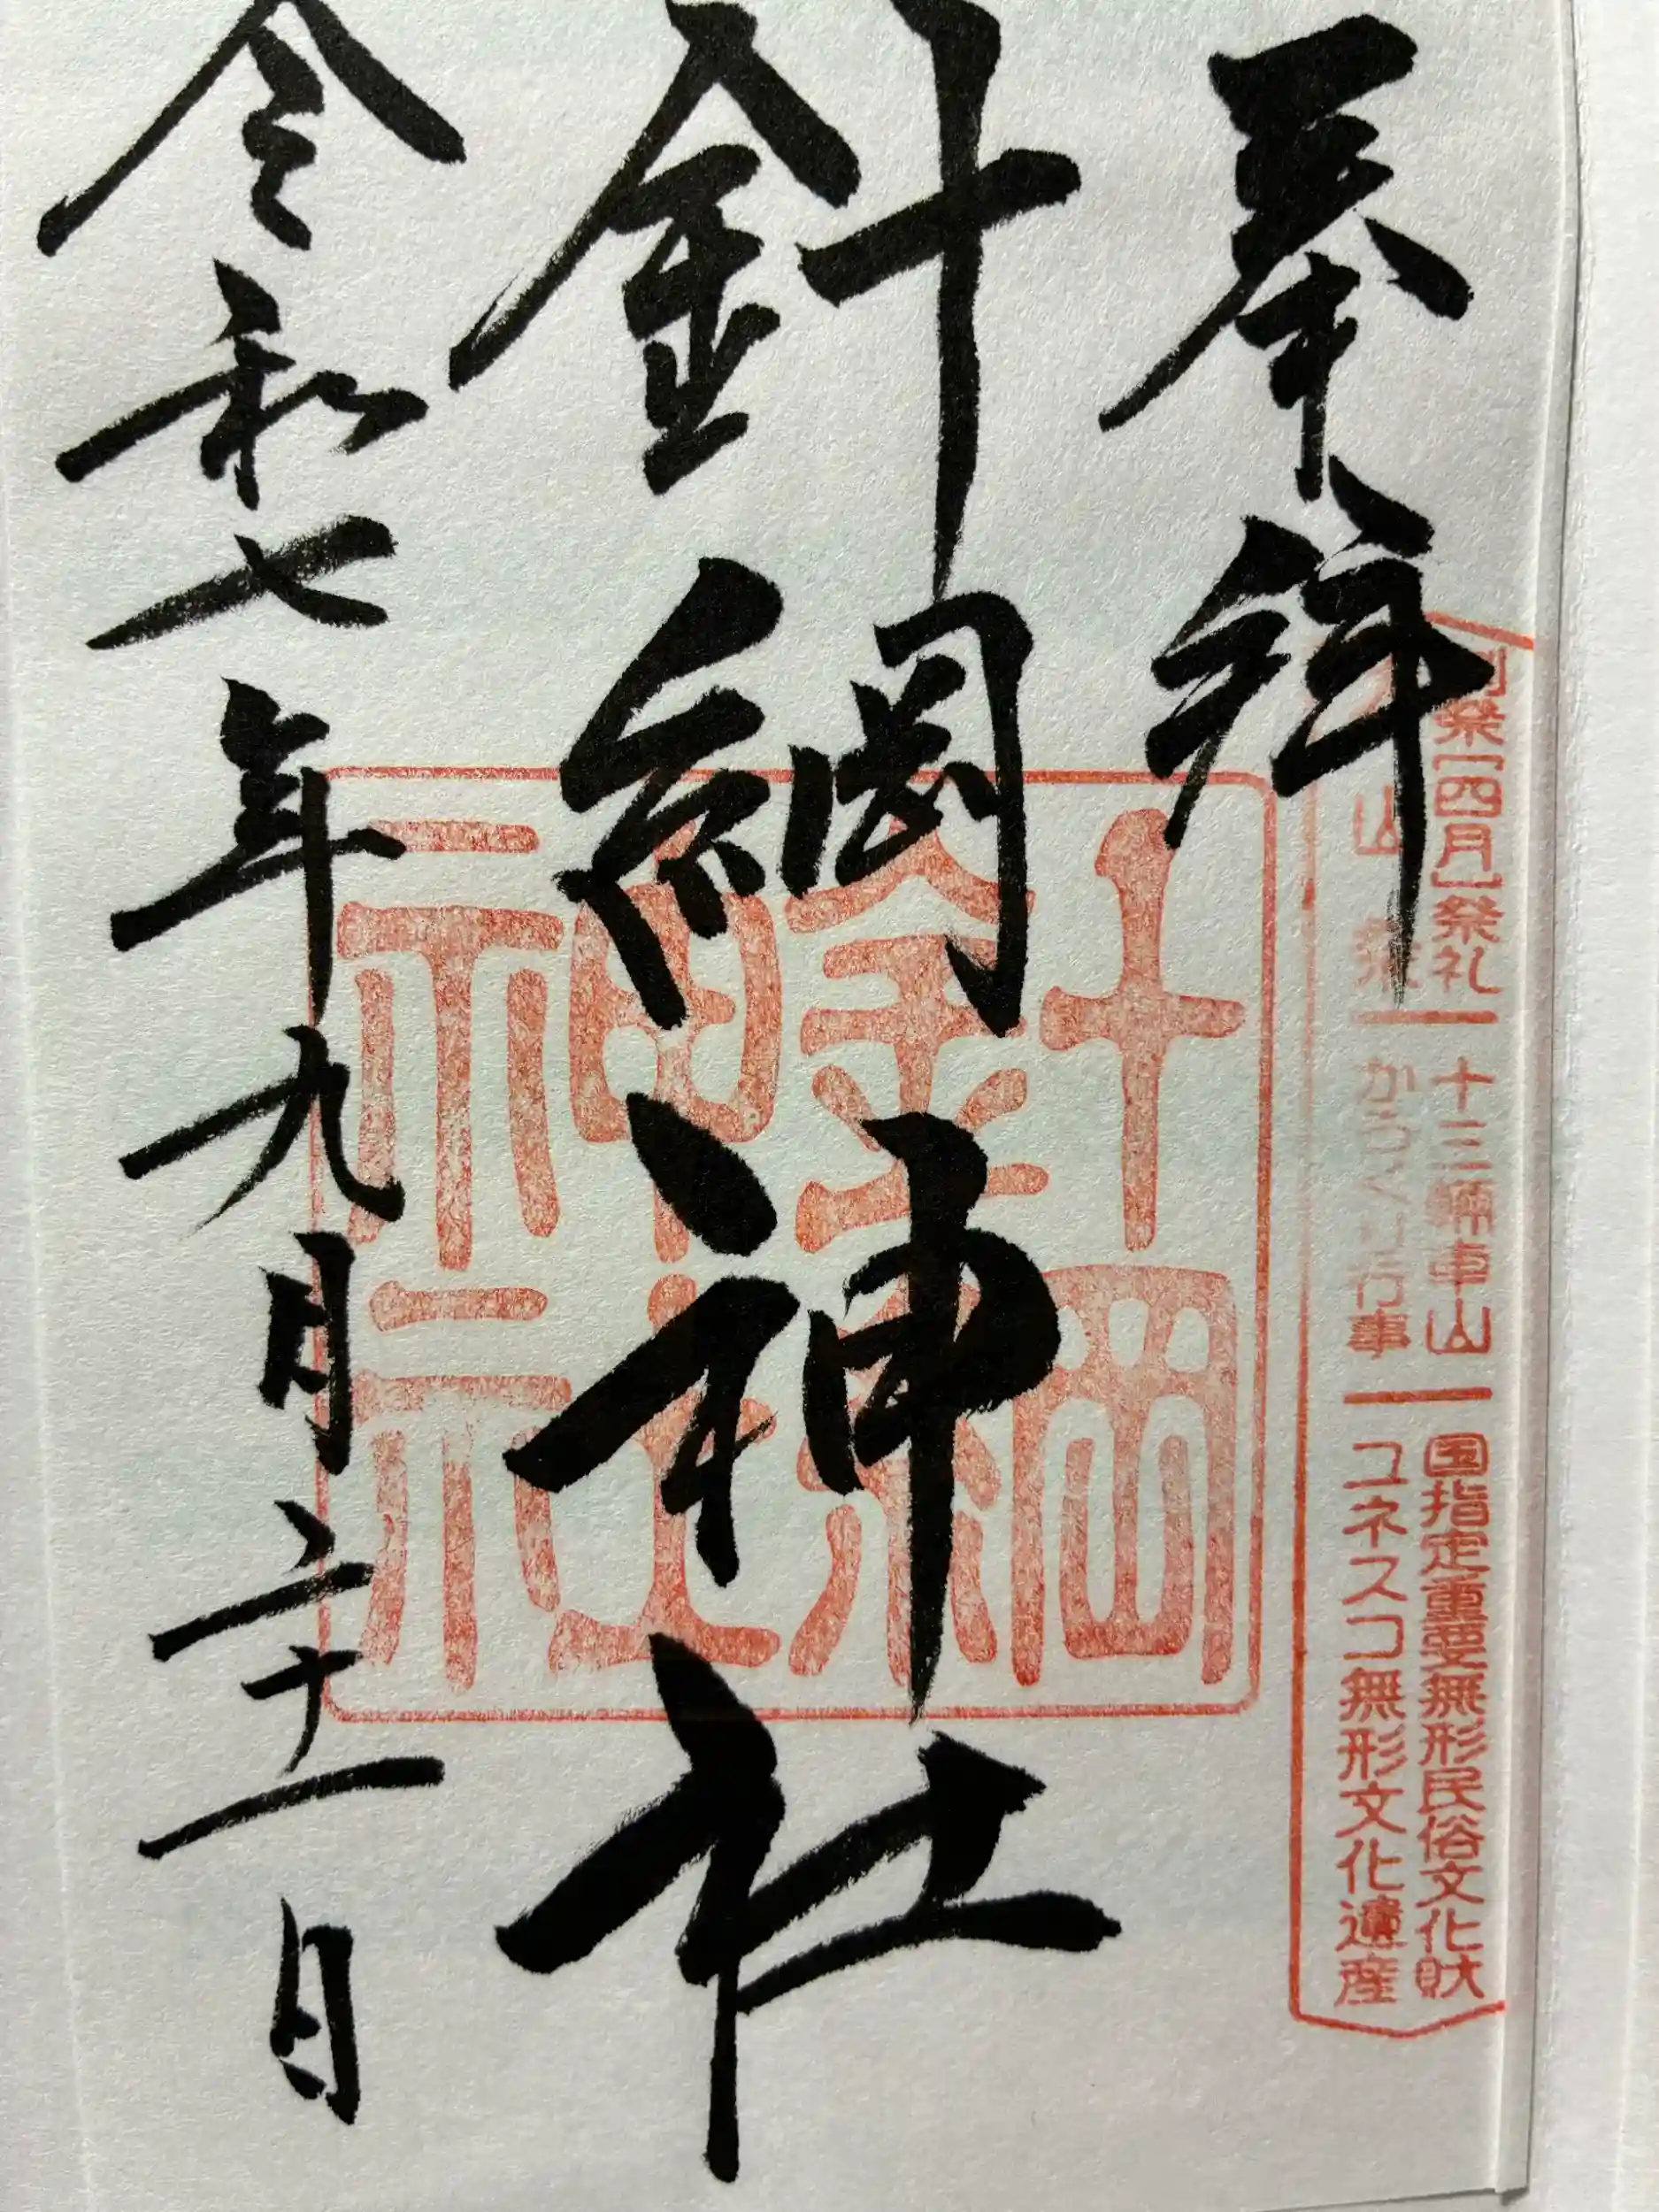 例祭[四月]祭礼 十三輌車山 国指定重要無形民俗文化財
山祭 からくり行事 ユネスコ無形文化遺産
奉拝
針綱神社
針綱
神社
令和七年九月二十一日